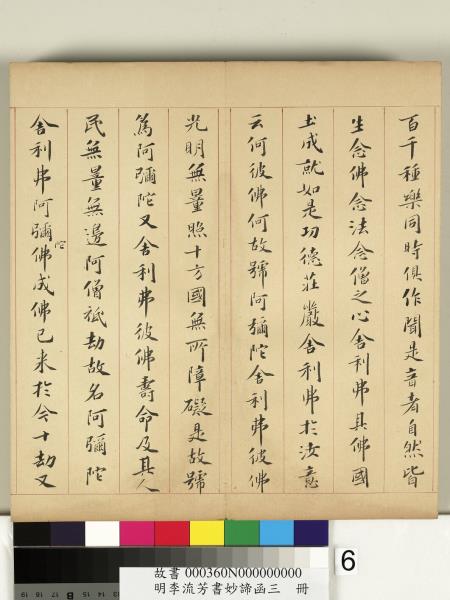 百千種樂同時俱作聞是音者自然皆
生念佛念法念僧之心舍利弗其佛國
土成就如是功德莊嚴舍利弗於汝意
云何彼佛何故號阿彌陀舍利弗彼佛
光明無量照十方國無所障礙是故號
為阿彌陀又舍利弗彼佛壽命及其人
民無量無邊阿僧祇劫故名阿彌陀
舍利弗阿彌陀佛成佛已來於今十劫又
6
故書 000360N000000000
明李流芳書妙諦函三 冊
B
15 16 17 18 19